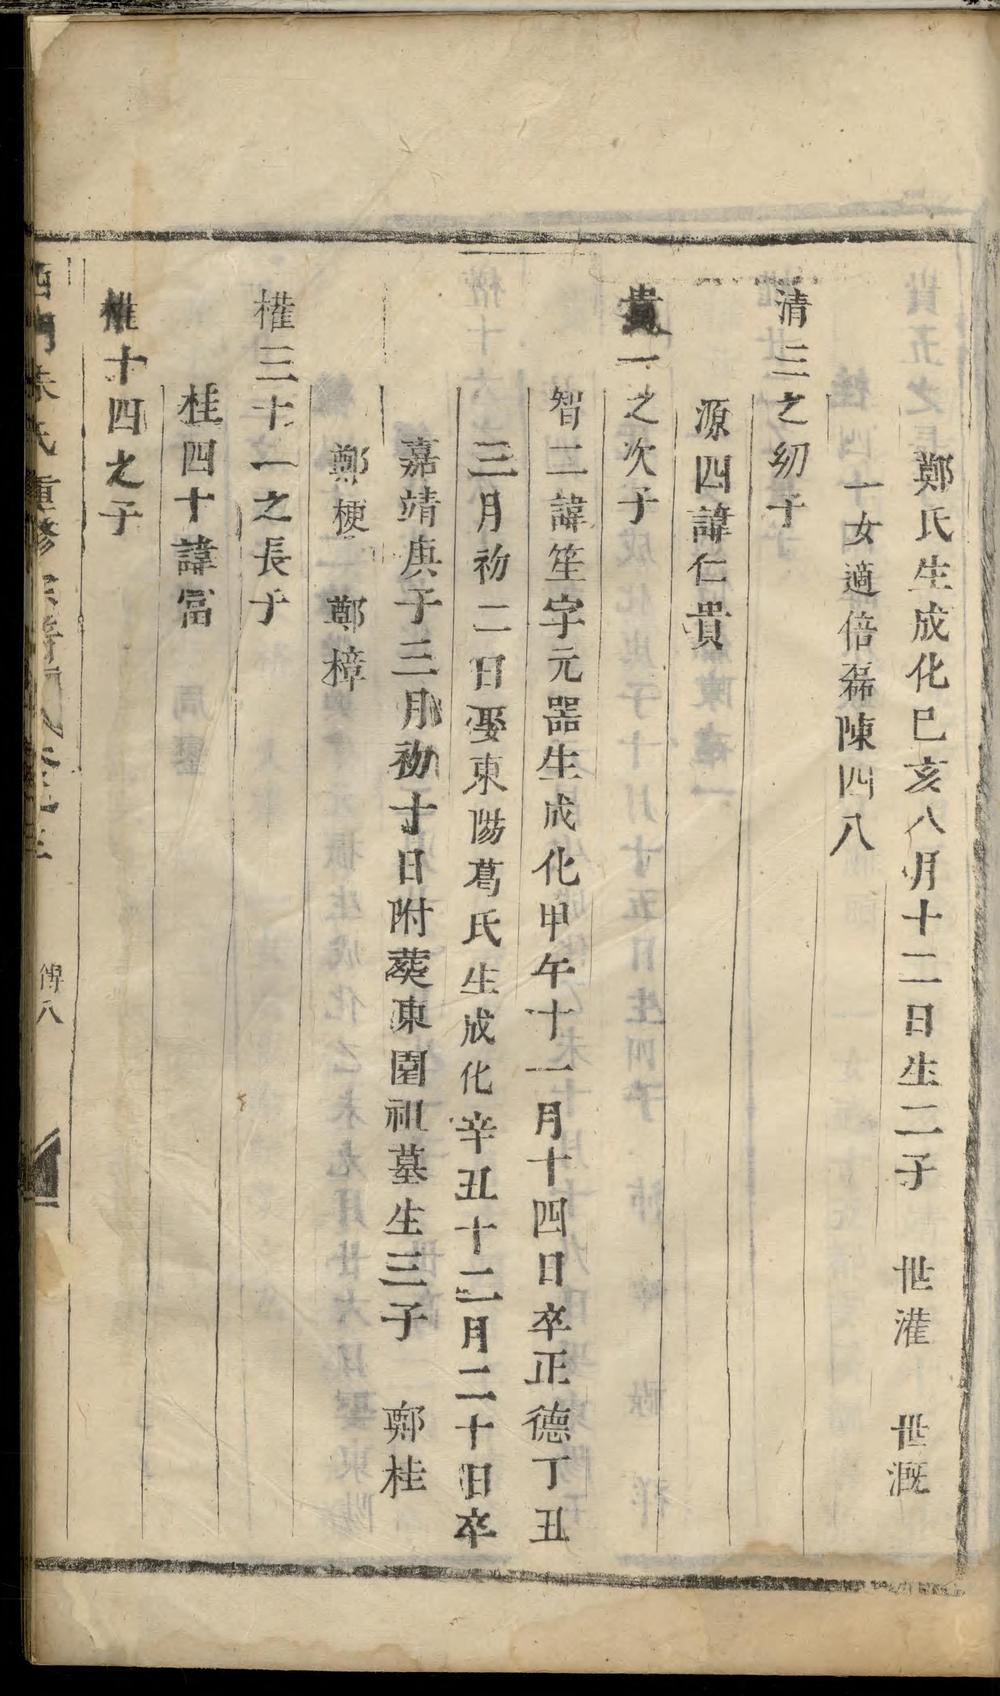 鄭氏生成化己亥八月十二日生二子 世灌 世溉
一女適倍磊陳四八
清三之幼子
源四諱仁貴
貴一之次子
智二諱笙字元器生成化甲午十一月十四日卒正德丁丑
三月初二日娶東陽葛氏生成化辛丑十二月二十日卒
嘉靖庚子三月初十日附葬東園祖墓生三子 鄭桂
鄭梗 鄭樟
權三十一之長子
桂四十諱富
權十四之子
西門朱氏重修宗譜 卷之三 傳八